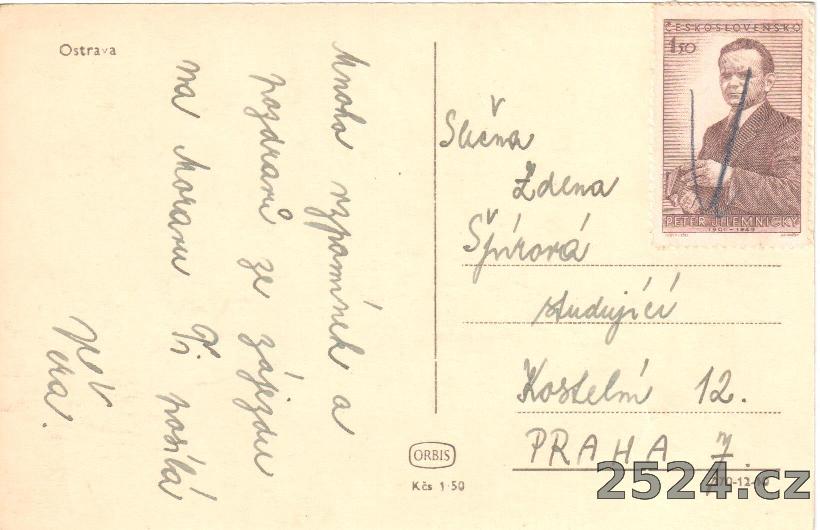 Ostrava
Mnoho vzpomínek a
pozdravů ze zájezdu
na Moravu Ti posílá
ČESKOSLOVENSKO
1,50
PETER JILEMNICKÝ
1901-1949
Slečna
Zdena
Špírová
studující
Kostelní 12.
PRAHA 7.
ORBIS
Kčs 1·50
2524.cz